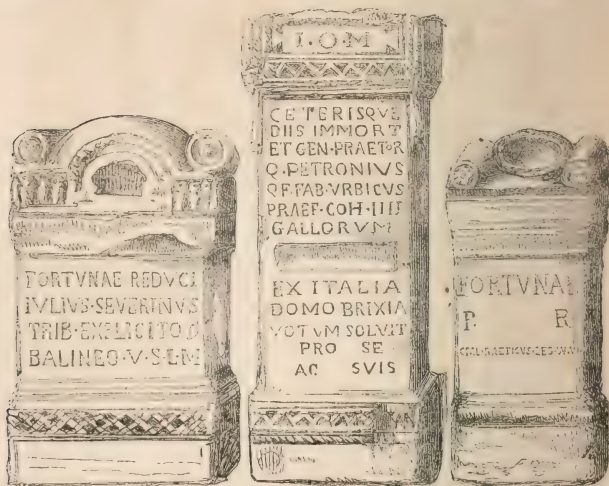 FORTVNAE REDVCI
IVLIVS·SEVERINVS
TRIB·EXPLICITO
BALINEO·V·S·L·M
I·O·M
CETERISQVE
DIIS IMMORT
ET GEN·PRAETOR
Q·PETRONIVS
Q·F·FAB·VRBICVS
PRAEF·COH·IIII
GALLORVM
EX ITALIA
DOMO BRIXIA
VOTVM SOLVIT
PRO SE
AC SVIS
FORTVNAE
P R